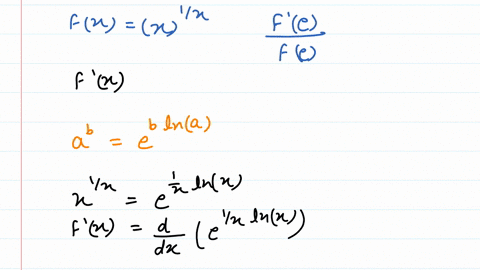 f(x) = (x)^{1/x}    f'(e)/f(e)
f'(x)
a^b = e^{b ln(a)}
x^{1/x} = e^{1/x ln(x)}
f'(x) = d/dx (e^{1/x ln(x)})